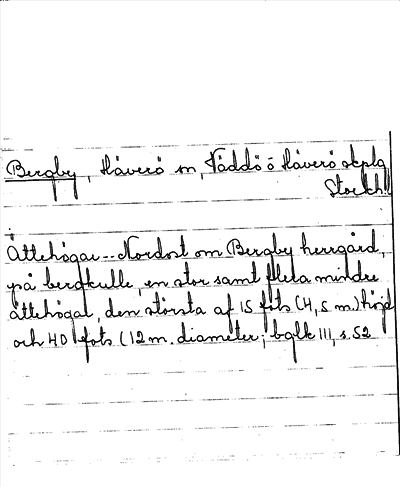 Bergby, Häverö sn, Väddö ö Häverö skplg
Stockh.
Ättehögar -- Nordost om Bergby herrgård,
på bergkulle, en stor samt flera mindre
ättehögar, den största af 15 fots (4,5 m.) höjd
och 40 fots (12 m. diameter; bglk III, s. 52